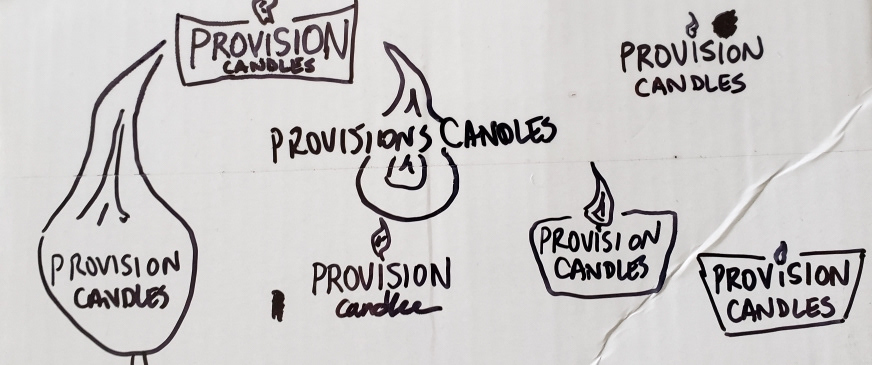 PROVISION
CANDLES
PROVISION
CANDLES
PROVISIONS CANDLES
PROVISION
CANDLES
PROVISION
candle
PROVISION
CANDLES
PROVISION
CANDLES